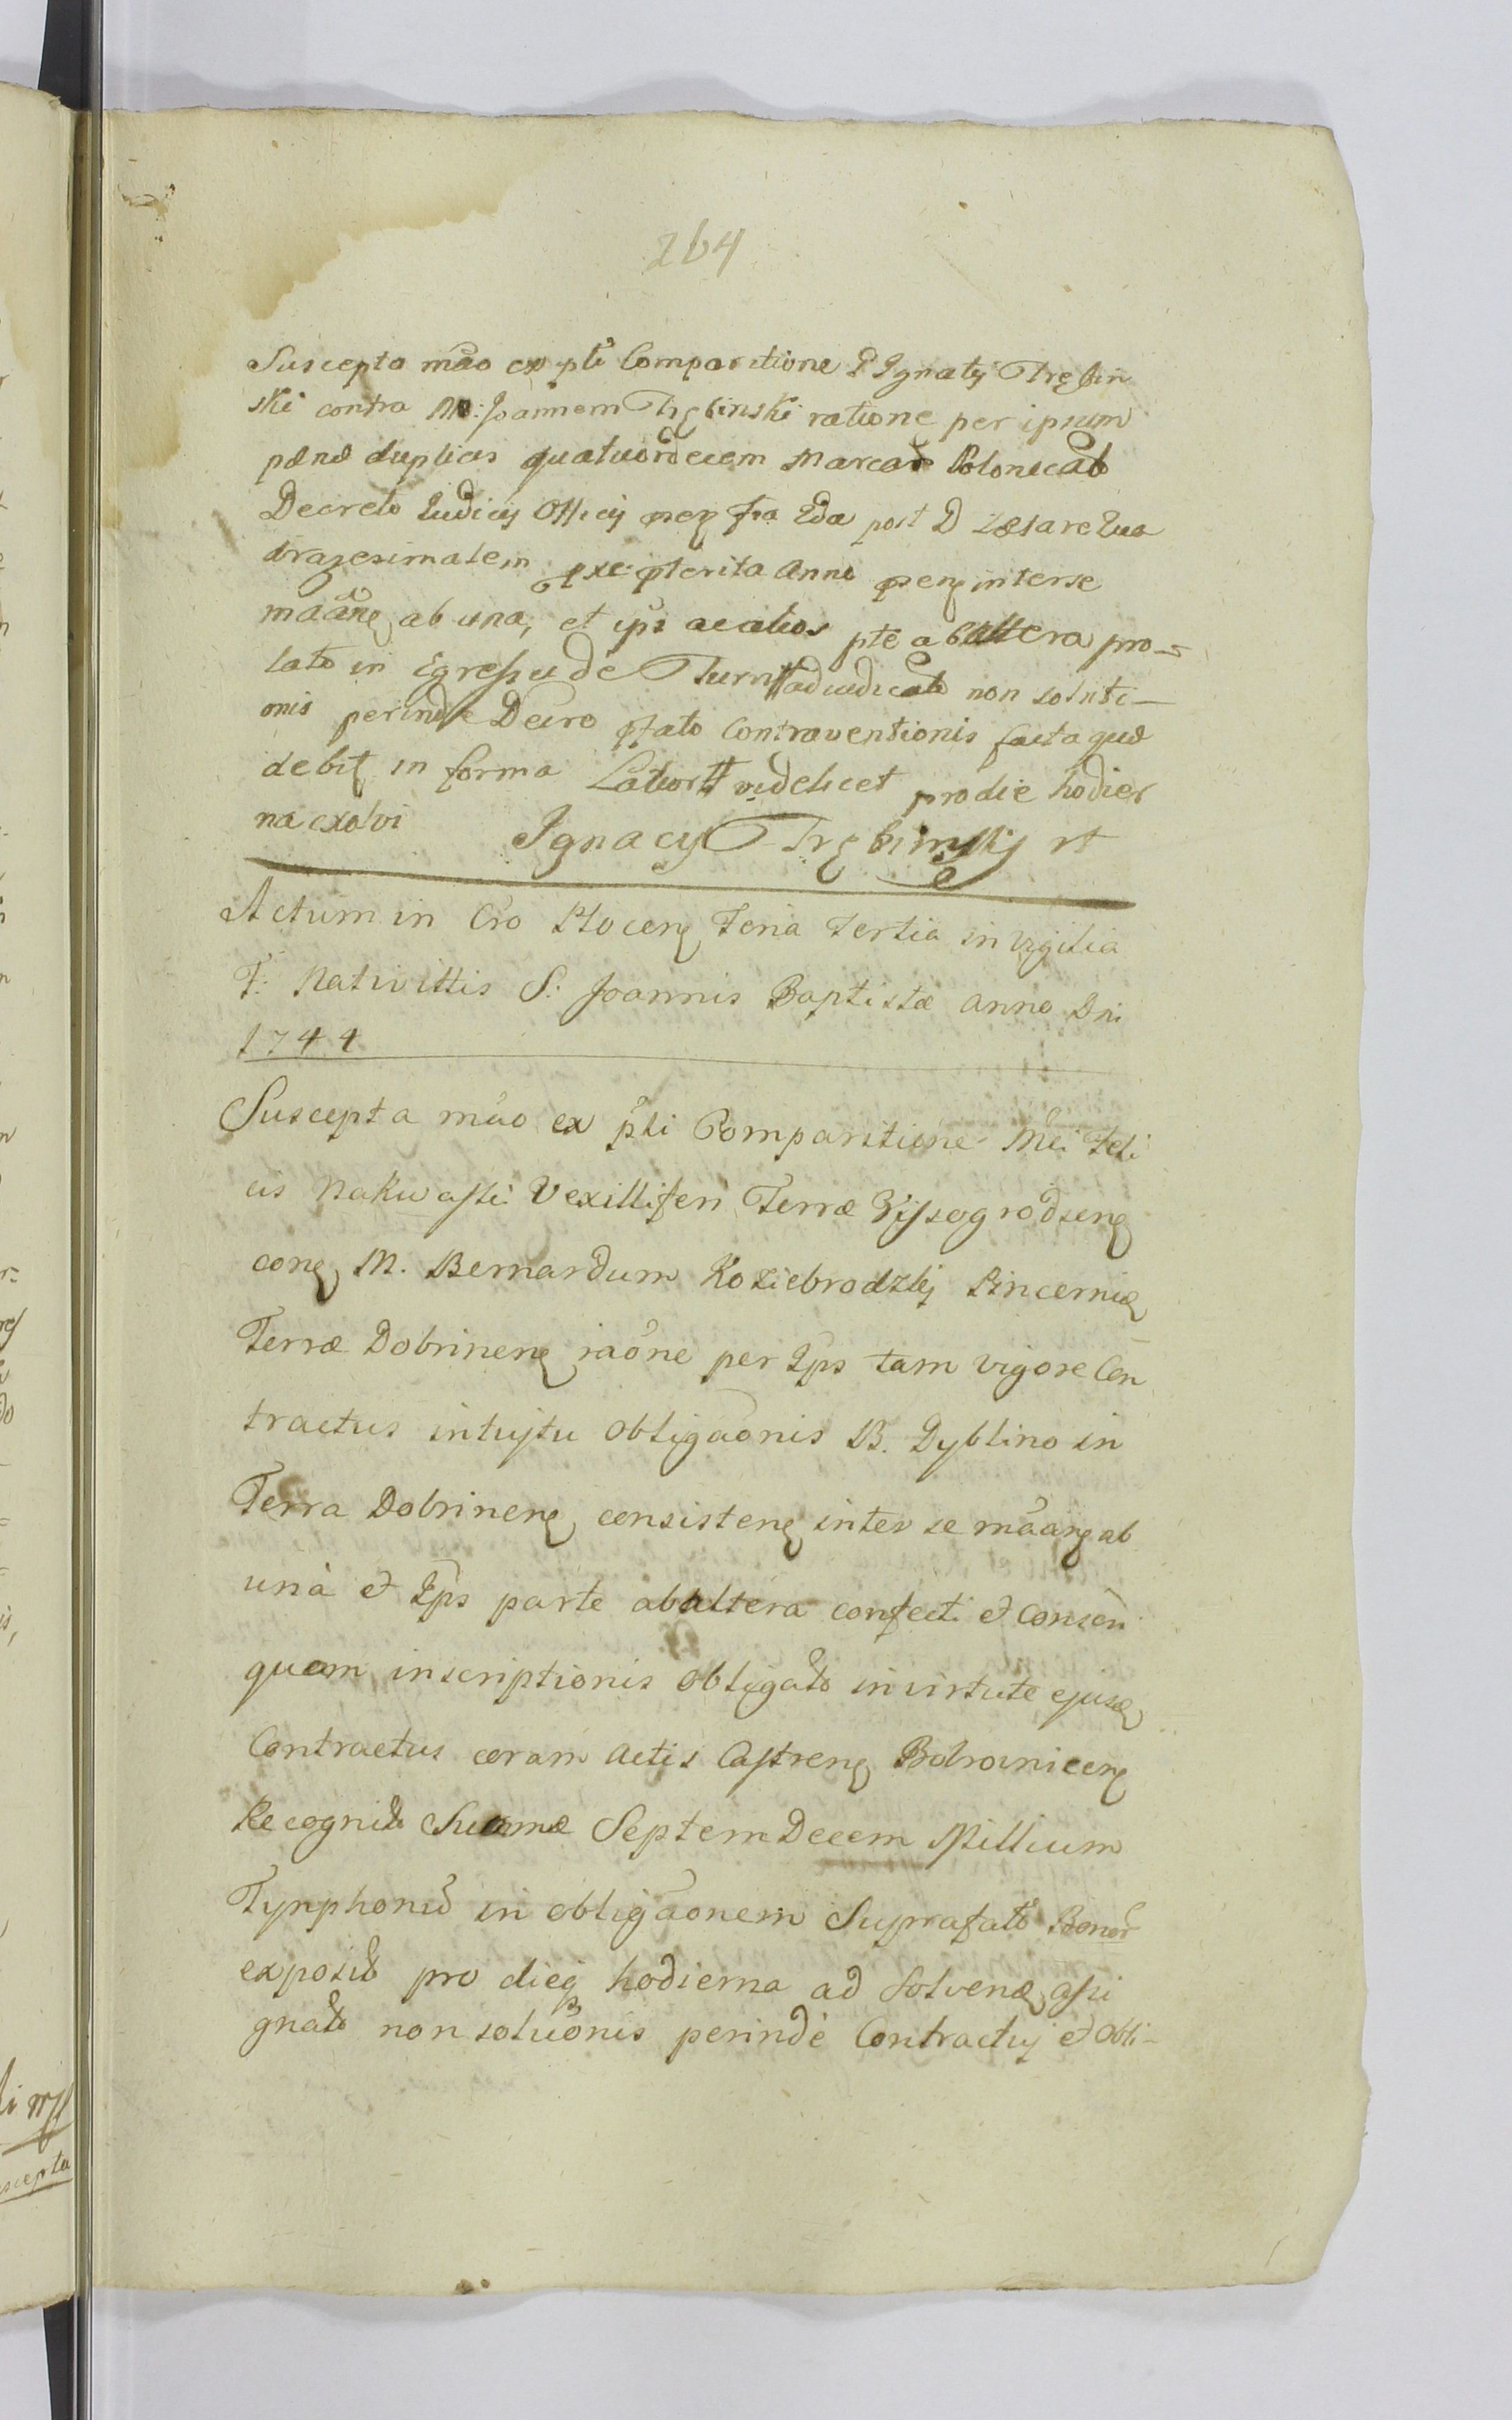 264
Suscepta mão ex pti Comparitione P Ignatij Trębin
ski contra M: Joannem Trębinski ratione per ipsum
pænæ duplicis quatuordecem Marcar Polonicať
Decreto Iudicij Officij fra 2da post D Lætare Qua
dragesimalem pterita Anno inter se
mãane ab una, et ips ac alios pte ab altera pro-
lato in Egressu de Turri adiudicať non soluti-
onis perinde Decro pfato Contraventionis facta
debit in forma videlicet pro die hodier
na exolvi Ignacy Trębinsky
Actum in Cro Plocen Feria Tertia in Vigilia
F: Nativittis S: Joannis Baptistæ Anno Dni
1744
Suscepta mão ex pti Comparitione Mci Feli
cis Nakwaski Vexilliferi Terræ Vyssogrodsen
con M. Bernardum Koziebrodzkij Pincerna
Terræ Dobrinen raõne per Ips tam vigore Con
tractus intuitu Obligaonis B. Dyblino in
Terra Dobrinen consisten inter se mãan ab
una et Ips parte ab altera confecti et Consen
quam inscriptionis Obligato in virtute ejusd
Contractus coram Actis Castren Bobrownicen
Recognit Summæ Septem Decem Millium
Tynphonũ in obligãonem Suprafato Bonor
exposit pro die hodierna ad Solvend assi
gnato non soluõnis perinde Contractuj et Obli-